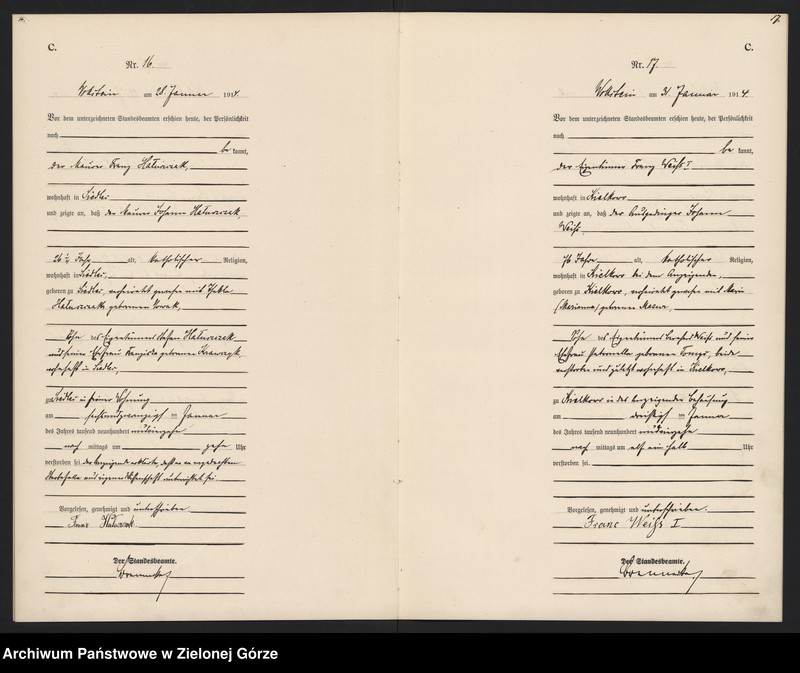 C.
Nr. 16
Wollstein am 28. Januar 1914.
Vor dem unterzeichneten Standesbeamten erschien heute, der Persönlichkeit
nach
be kannt,
der Maurer Franz Hałuszczak,
wohnhaft in Siedlec
und zeigte an, daß der Maurer Johann
26 1/2 Jahre alt, katholischer Religion,
wohnhaft in Siedlec,
geboren zu Siedlec, verheiratet gewesen mit Thekla
geborenen Nowak,
Sohn des Eigentümers Stefan
und seiner Ehefrau geborenen Krawczyk
wohnhaft in Siedlec,
zu Siedlec in seiner Wohnung
am sechsundzwanzigsten Januar
des Jahres tausend neunhundert vierzehn
nach mittags um zehn Uhr
verstorben sei, der Anzeigende erklärte, daß er von
Sterbefalle aus eigener Wissenschaft unterrichtet sei.
Vorgelesen, genehmigt und unterschrieben
Franz
Der Standesbeamte.
17.
C.
Nr. 17.
Wollstein am 31. Januar 1914.
Vor dem unterzeichneten Standesbeamten erschien heute, der Persönlichkeit
nach
be kannt,
der Eigentümer Franz Weihs I
wohnhaft in Kielkowo
und zeigte an, daß der Ausgedinger Johann
Weihs,
76 Jahre alt, katholischer Religion,
wohnhaft in Kielkowo bei dem Anzeigenden,
geboren zu Kielkowo, verheiratet gewesen mit Marie
(Marianna) geborenen
Sohn des Eigentümers Weihs und seiner
Ehefrau Petronella geborenen beide
verstorben und zuletzt wohnhaft in Kielkowo,
zu Kielkowo in des Anzeigenden Behausung
am dreißigsten Januar
des Jahres tausend neunhundert vierzehn
nach mittags um elf ein halb Uhr
verstorben sei.
Vorgelesen, genehmigt und unterschrieben.
Franc Weihs I
Der Standesbeamte.
Archiwum Państwowe w Zielonej Górze